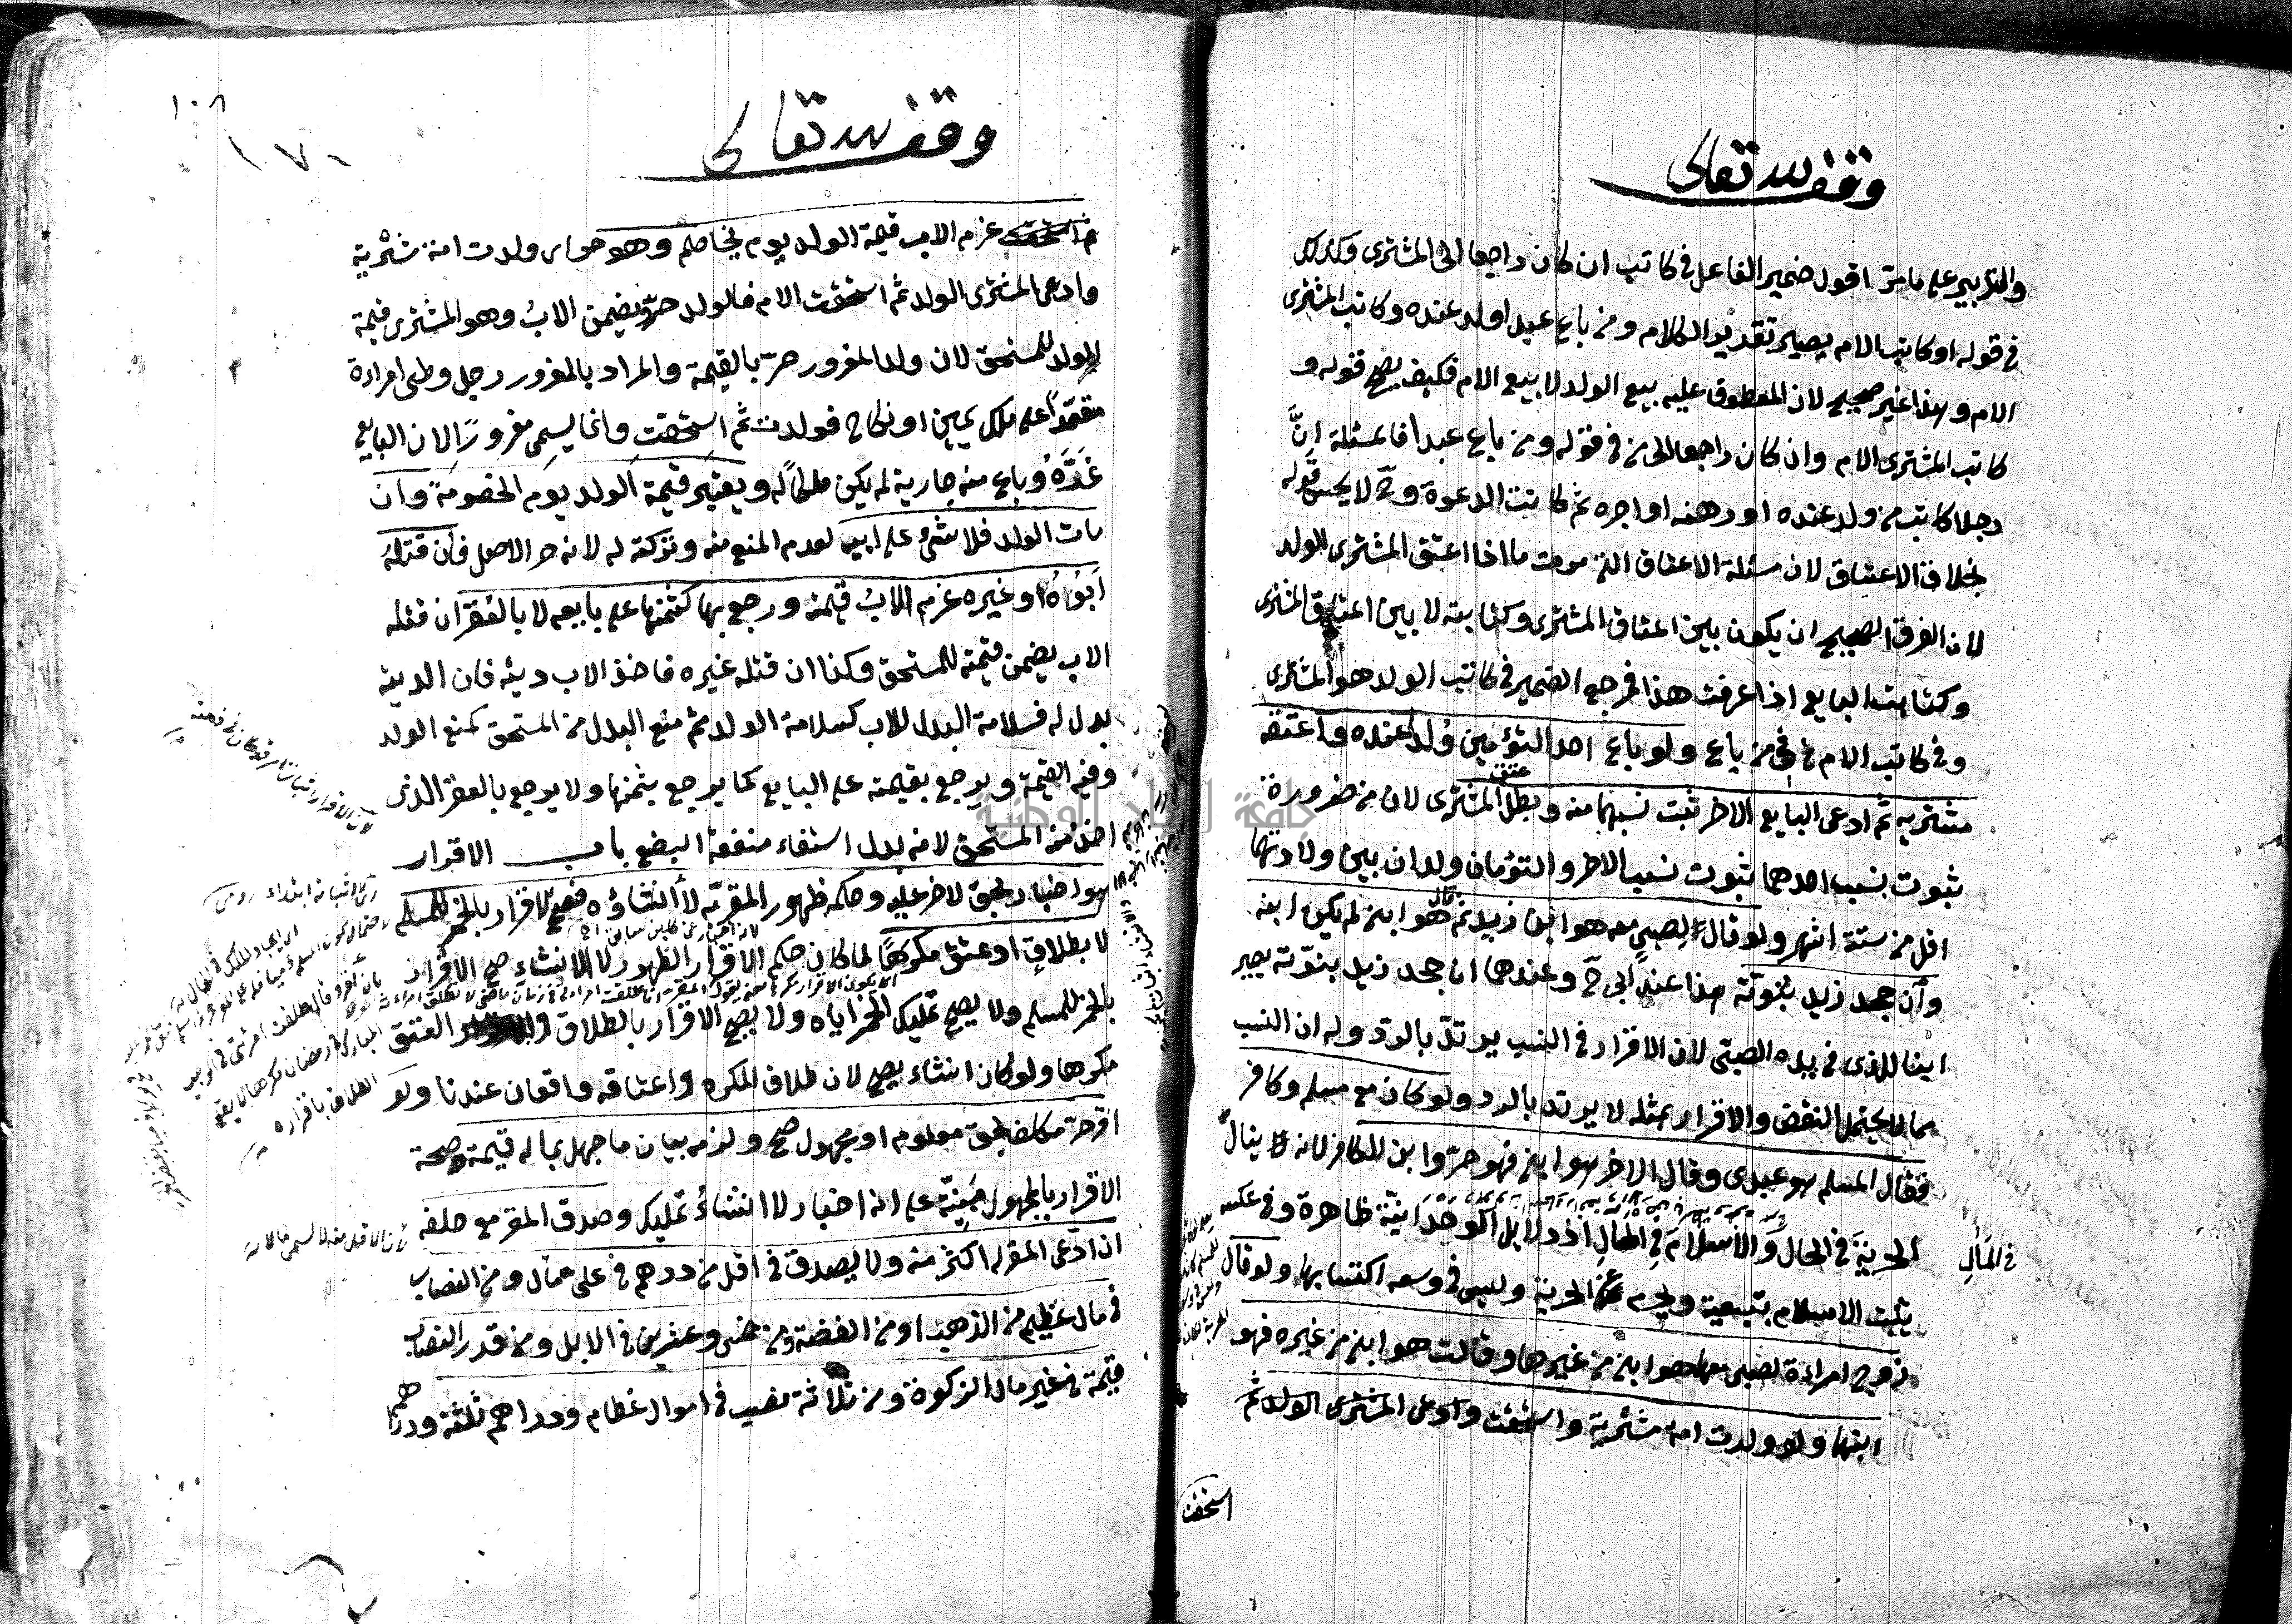 وقف لله تعالى
والتدبير على ما مرّ اقول ضمير الفاعل في كاتب ان كان راجعا الى المشترى وكذلك
في قوله او كاتب الام يصير تقدير الكلام ومن باع عبدا ولد عنده وكاتب المشترى
الام وهذا غير صحيح لان المعطوف عليه بيع الولد لا بيع الام فكيف يصح قوله و
كاتب المشترى الام وان كان راجعا الى من في قوله ومن باع عبدا فالمسئلة انّ
رجلا كاتب من ولد عنده او رهنه او اجره ثم كانت الدعوة وح لا يحسن قوله
بخلاف الاعتاق لان مسئلة الاعتاق التى مرت ما اذا اعتق المشترى الولد
لان الفرق الصحيح ان يكون بين اعتاق المشترى وكتابته لا بين اعتاق المشترى
وكتابت البايع اذا عرفت هذا فمرجع الضمير في كاتب الولد هو المشترى
وفي كاتب الام من في من باع ولو باع احد التؤمين وُلدا عنده واعتقه
مشتريه ثم ادعى البايع الاخر ثبت نسبهما منه وبطل عتق المشترى لان من ضرورة
ثبوت نسب احدهما ثبوت نسب الاخر والتؤمان ولدان بين ولادتهما
اقل من ستة اشهر ولو قال لصبي معه هو ابن زيد ثم قال هو ابنى لم يكن ابنه
وان جحد زيد بنوّته هذا عند ابى ح وعندهما ان جحد زيد بنوّته يصير
ابنا للذى في يده الصبي لان الاقرار في النسب يرتدّ بالردّ وله ان النسب
مما لا يحتمل النقض والاقرار بمثله لا يرتد بالرد ولو كان مع مسلم وكافر
فقال المسلم هو عبدى وقال الاخر هو ابنى فهو حرّ وابن للكافر لانه ينال
الحرية في الحال والاسلام في المآل اذ دلايل الوحدانية ظاهرة وفي عكسه
في المآل
يثبت الاسلام بتبعية ويحرم عن الحرية وليس في وسعه اكتسابها ولو قال
زوج امراة لصبى معهما هو ابنى من غيرها وقالت هو ابنى من غيره فهو
ابنهما ولو ولدت امة مشترية واستحقت وادعى المشترى الولد ثم
استحقت
وقف لله تعالى
١٠٨
١٧٠
غرم الاب قيمة الولد يوم يخاصم وهو حر اى ولدت امة مشترية
وادعى المشترى الولد ثم استحقت الام فالولد حرّ ويضمن الابُ وهو المشترى قيمة
الولد للمستحق لان ولد المغرور حرّ بالقيمة والمراد بالمغرور رجل وطى امراءة
معتمدا على ملك يمين او نكاح فولدت ثم استحقت وانما يسمى مغرورًا لان البايع
غرّهُ وباع منه جارية لم يكن ملكًا له ويعتبر قيمة الولد يوم الخصومة وان
مات الولد فلا شئ على ابيه لعدم المنع منه وتركته له لانه حر الاصل فان قتله
ابُوه او غيره غرم الابُ قيمته ورجع بها كثمنها على بايعه لا بالعُقر ان قتله
الاب يضمن قيمته للمستحق وكذا ان قتله غيره فاخذ الاب ديته فان الدية
بدل له فسلامة البدل للاب كسلامة الولد ثم منع البدل من المستحق كمنع الولد
وفيه القيمة ويرجع بقيمته على البايع كما يرجع بثمنها ولا يرجع بالعقر الذى
اخذ منه المستحق لانه بدل استيفاء منفعة البضع باب الاقرار
هو اخبار بحق لاخر عليه وحكمه ظهور المقرّ به لا انشاؤه فصح الاقرار بالخمر للمسلم
لا بطلاق او عتق مكرهًا لما كان حكم الاقرار الظهور لا الانشاء صح الاقرار
بالخمر للمسلم ولا يصح تمليك الخمر اياه ولا يصح الاقرار بالطلاق والعتق
مكرها ولو كان انشاء يصح لان طلاق المكره واعتاقه واقعان عندنا ولو
اقرّ حرّ مكلف بحق معلوم او مجهول صح ولزمه بيان ما جهل بما له قيمة وصحة
الاقرار بالمجهول مَبنيّة على انه اخبار لا انشاءُ تمليك وصدق المقر مع حلفه
ان ادّعى المقر له اكثر منه ولا يصدق في اقل من درهم في على مال ومن النصاب
في مال عظيم من الذهب او من الفضة ومن خمس وعشرين في الابل ومن قدر النصاب
قيمة في غير مال الزكوة ومن ثلاثة نصب في اموال عظام ودراهم ثلثة ودراهم